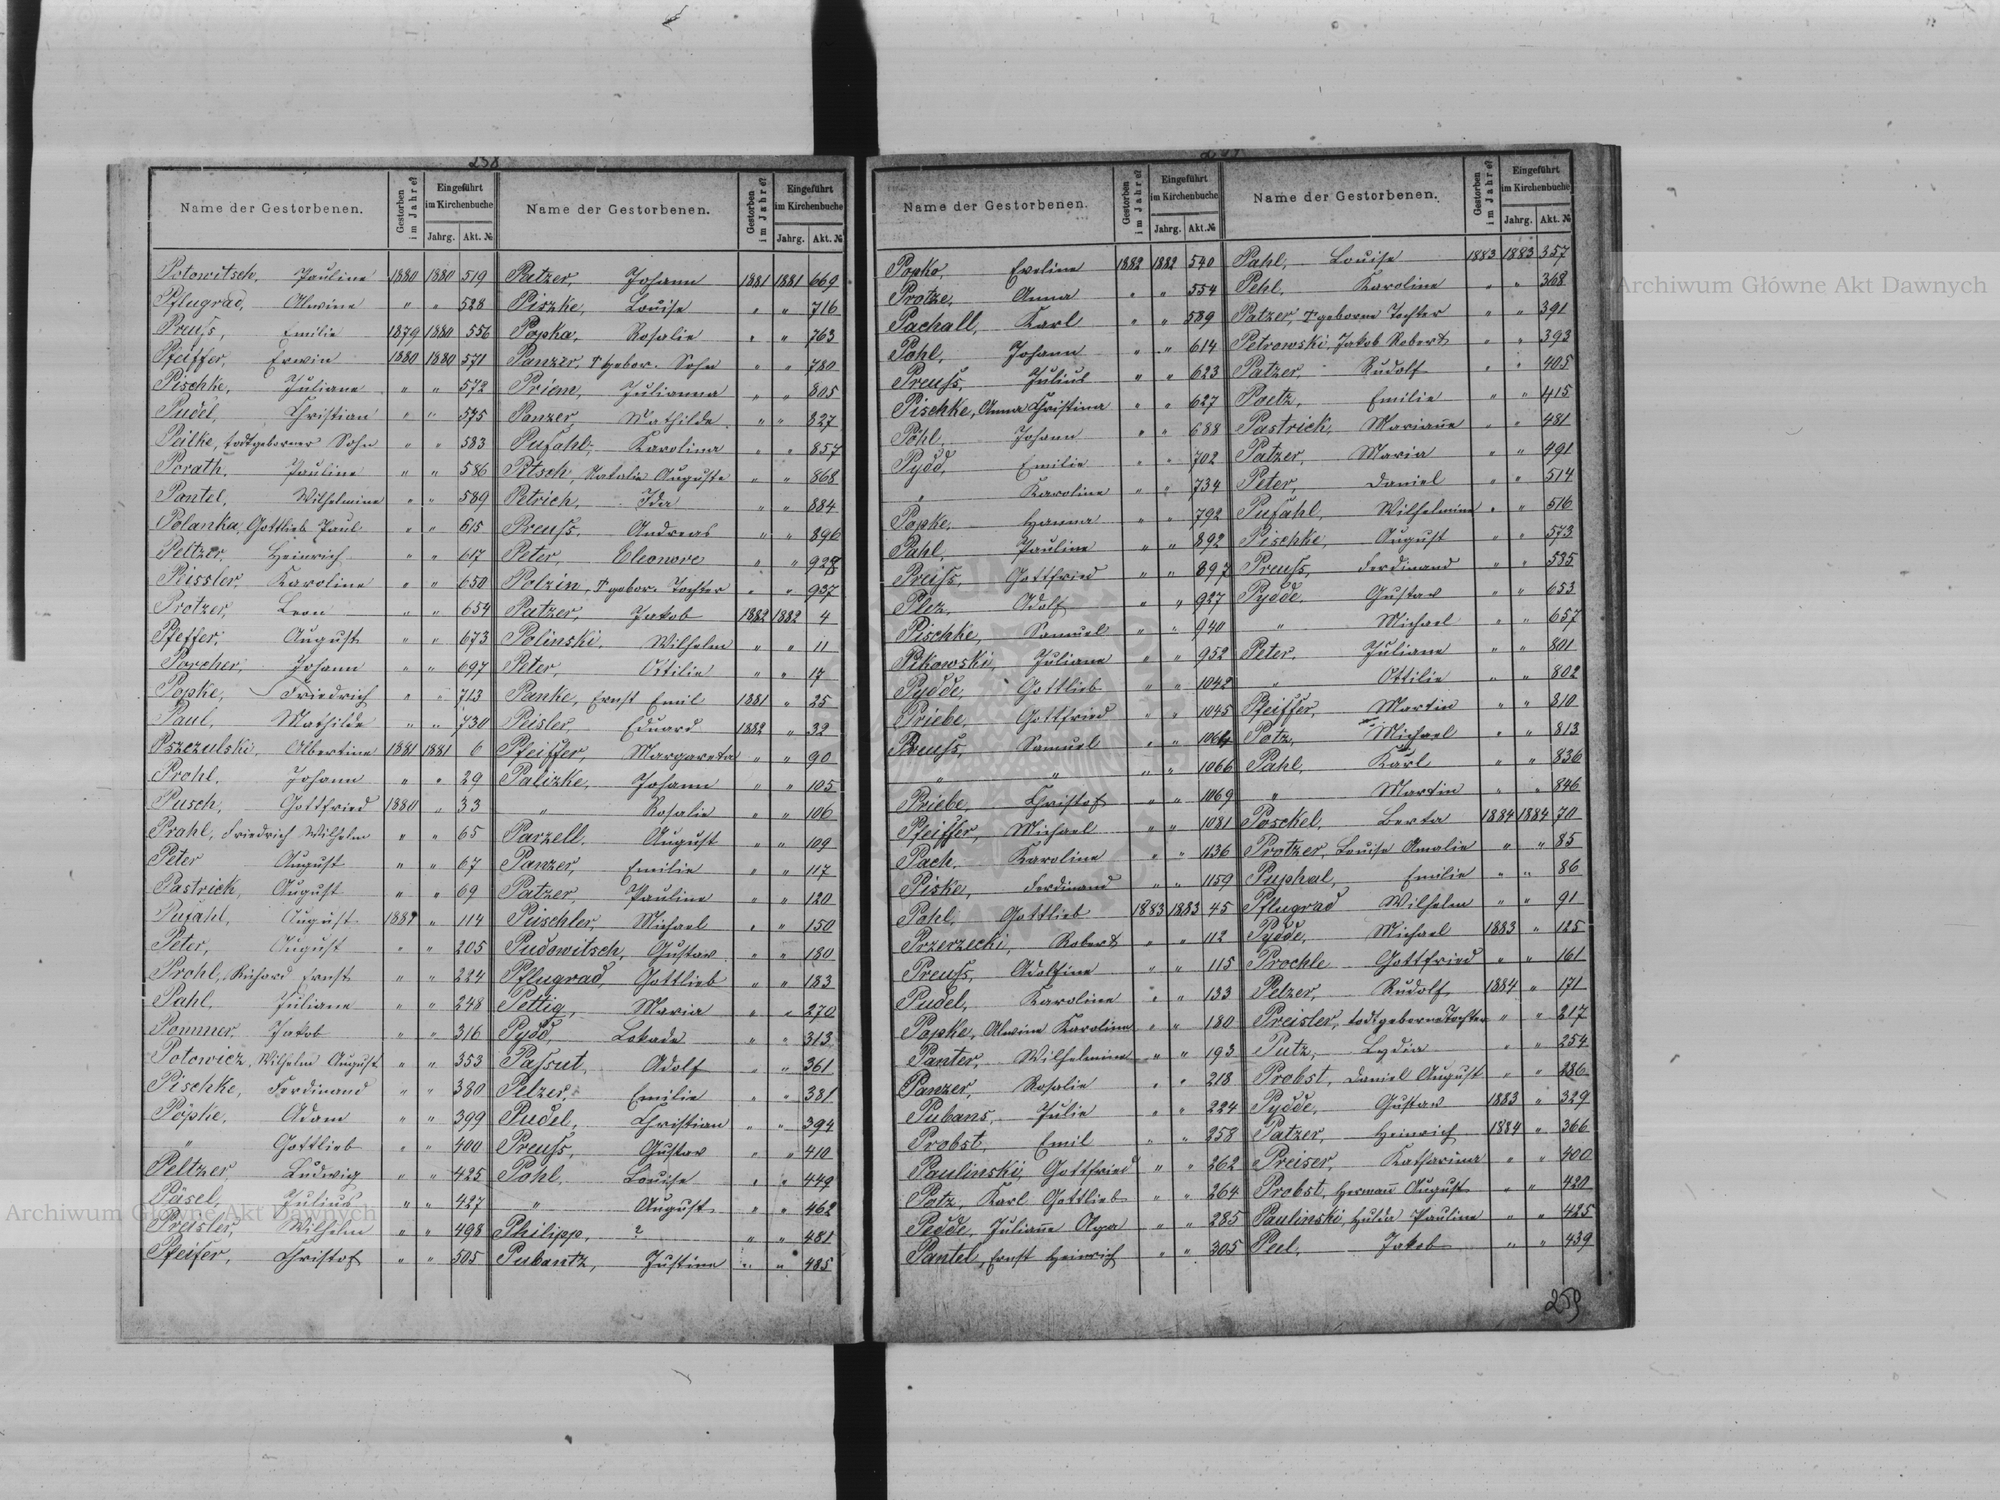 238
Name der Gestorbenen.
Gestorben im Jahre?
Eingeführt im Kirchenbuche
Jahrg.
Akt. №
Potowitsch, Pauline 1880 1880 519
Pflugrad, Alwine " " 528
Preuſs, Emilie 1879 1880 556
Pfeiffer, Erwin 1880 1880 571
Pischke, Juliane " " 572
Pudel, Christian " " 575
Peilke, todtgeborner Sohn " " 583
Porath, Pauline " " 586
Pantel, Wilhelmine " " 589
Polanka, Gottlieb Paul " " 615
Peltzer, Heinrich " " 617
Peissler, Karoline " " 650
Protzer, Leon " " 654
Pfeffer, August " " 673
Porcher, Johann " " 697
Popke, Friedrich " " 713
Paul, Mathilde " " 730
Pszczulski, Albertine 1881 1881 6
Prohl, Johann " " 29
Pusch, Gottfried 1880 " 33
Prahl, Friedrich Wilhelm " " 65
Peter August " " 67
Pastrick, August " " 69
Pufahl, August 1881 " 114
Peter, August " " 205
Prohl, Richard Ernst " " 224
Pahl, Juliane " " 248
Pommer, Jakob " " 316
Potowicz, Wilhelm August " " 353
Pischke, Ferdinand " " 380
Pöpke, Adam " " 399
" Gottlieb " " 400
Peltzer, Ludwig " " 425
Päsel, Julius " " 427
Preisler, Wilhelm " " 498
Pfeifer, Christof " " 505
Name der Gestorbenen.
Gestorben im Jahre?
Eingeführt im Kirchenbuche
Jahrg.
Akt. №
Patzer, Johann 1881 1881 669
Piszke, Louise " " 716
Popka, Rosalie " " 763
Panzer, T'gebor. Sohn " " 780
Priem, Julianna " " 805
Panzer, Mathilde " " 827
Pufahl, Karolina " " 857
Pitsch, Natalie Auguste " " 868
Petrich, Ida " " 884
Preuſs, Andreas " " 896
Peter, Eleonore " " 928
Polzin, T'gebor. Tochter " " 937
Patzer, Jakob 1882 1882 4
Polinski, Wilhelm " " 11
Peter, Ottilie " " 17
Panke, Ernst Emil 1881 " 25
Peisler, Eduard 1882 " 32
Pfeiffer, Margareta " " 90
Palizke, Johann " " 105
" Rosalie " " 106
Parzell, August " " 109
Panzer, Emilie " " 117
Patzer, Pauline " " 120
Püschler, Michael " " 150
Pudowitsch, Gustav " " 180
Pflugrad, Gottlieb " " 183
Pettig, Maria " " 270
Pydd, Lokada " " 313
Paſsut, Adolf " " 361
Pelzer, Emilie " " 381
Pudel, Christian " " 394
Preuſs, Gustav " " 410
Pohl, Louise " " 449
" August " " 462
Philipp, ? " " 481
Pubantz, Justine " " 485
Name der Gestorbenen.
Gestorben im Jahre?
Eingeführt im Kirchenbuche
Jahrg.
Akt. №
Popko, Eveline 1882 1882 540
Protze, Anna " " 554
Pachall, Karl " " 589
Pohl, Johann " " 614
Preuſs, Julius " " 623
Pischke, Anna Christina " " 627
Pöhl, Johann " " 688
Pydd, Emilie " " 702
" Karoline " " 734
Popke, Hanna " " 792
Pahl, Pauline " " 892
Preiſs, Gottfried " " 897
Plez, Adolf " " 927
Pischke, Samuel " " 940
Pikowski, Juliane " " 952
Pydde, Gottlieb " " 1042
Priebe, Gottfried " " 1045
Preuſs, Samuel " " 1064
" " " " 1066
Priebe, Christof " " 1069
Pfeiffer, Michael " " 1081
Pach, Karoline " " 1136
Piske, Ferdinand " " 1159
Pohl, Gottlieb 1883 1883 45
Przerzecki, Robert " " 112
Preuſs, Adolfine " " 115
Pudel, Karoline " " 133
Popke, Alwine Karolina " " 180
Panter, Wilhelmine " " 193
Panzer, Rosalie " " 218
Pubans, Julie " " 224
Probst, Emil " " 258
Paulinski, Gottfried " " 262
Potz, Karl Gottlieb " " 264
Pedde, Julian̄e Olga " " 285
Pantel, Ernst Heinrich " " 305
Name der Gestorbenen.
Gestorben im Jahre?
Eingeführt im Kirchenbuche
Jahrg.
Akt. №
Pahl, Louise 1883 1883 357
Pehl, Karoline " " 368
Patzer, T'geborne Tochter " " 391
Petrowski, Jakob Robert " " 393
Patzer, Rudolf " " 405
Paetz, Emilie " " 415
Pastrick, Marian̄e " " 481
Patzer, Maria " " 491
Peter, Daniel " " 514
Pufahl, Wilhelmine " " 516
Pischke, August " " 573
Preuſs, Ferdinand " " 585
Pydde, Gustav " " 653
" Michael " " 657
Peter, Juliane " " 801
" Ottilie " " 802
Pfeiffer, Martin " " 810
Potz, Michael " " 813
Pahl, Karl " " 836
" Martin " " 846
Poschel, Berta 1884 1884 70
Protzer, Louise Amalie " " 85
Puphal, Emilie " " 86
Pflugrad Wilhelm " " 91
Pydde, Michael 1883 " 125
Prochle Gottfried " " 161
Pelzer, Rudolf 1884 " 171
Preisler, todtgeborne Tochter " " 217
Putz, Lydia " " 254
Probst, Daniel August " " 286
Pydde, Gustav 1883 " 329
Patzer, Heinrich 1884 " 366
Preiser, Katharina " " 400
Probst, Herman̄ August " " 420
Paulinski, Hulda Pauline " " 425
Peel, Jakob " " 439
259
Archiwum Główne Akt Dawnych
Archiwum Główne Akt Dawnych